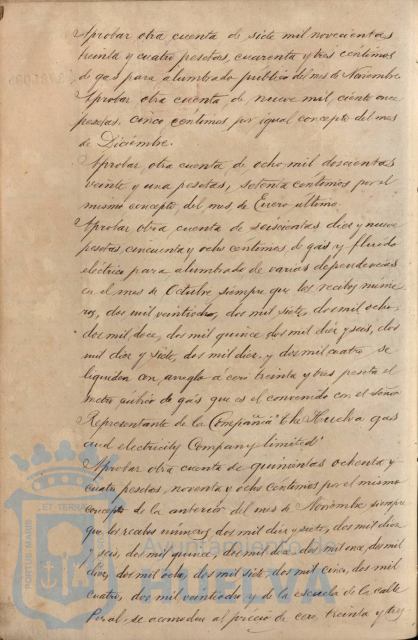 Aprobar otra cuenta de siete mil novecientas
treinta y cuatro pesetas, cuarenta y tres centimos
de gas para alumbrado publico del mes de Noviembre
Aprobar otra cuenta, de nueve mil, ciento once
pesetas, cinco centimos por igual concepto del mes
de Diciembre.
Aprobar otra cuenta, de ocho mil doscientas
veinte y una pesetas, setenta centimos por el
mismo concepto del mes de Enero último.
Aprobar otra cuenta de seiscientas diez y nueve
pesetas, cincuenta y ocho centimos, de gas y fluido
eléctrico para alumbrado de varias dependencias
en el mes de Octubre, siempre que los recibos nume-
ros, dos mil veintidos, dos mil siete, dos mil ocho,
dos mil doce, dos mil quince dos mil diez y seis, dos
mil diez y siete, dos mil diez, y dos mil cuatro se
liquiden con arreglo á cero treinta y tres peseta el
metro cúbico de gas que es el convenido con el Señor
Representante de la Compañia "the Huelva gas
and electricity Company limited"
Aprobar otra cuenta de quinientas ochenta y
cuatro pesetas, noventa y ocho centimos por el mismo
concepto de la anterior del mes de Noviembre siempre
que los recibos números, dos mil diez y siete, dos mil diez
y seis, dos mil quince, dos mil doce dos mil once, dos mil
diez, dos mil ocho, dos mil siete, dos mil cinco, dos mil
cuatro, dos mil veintidos y de la escuela de la calle
se acomoden al precio de cero, treinta y tres
PORTUS MARIS
ET TERRAE
Ayuntamiento de
HUELVA